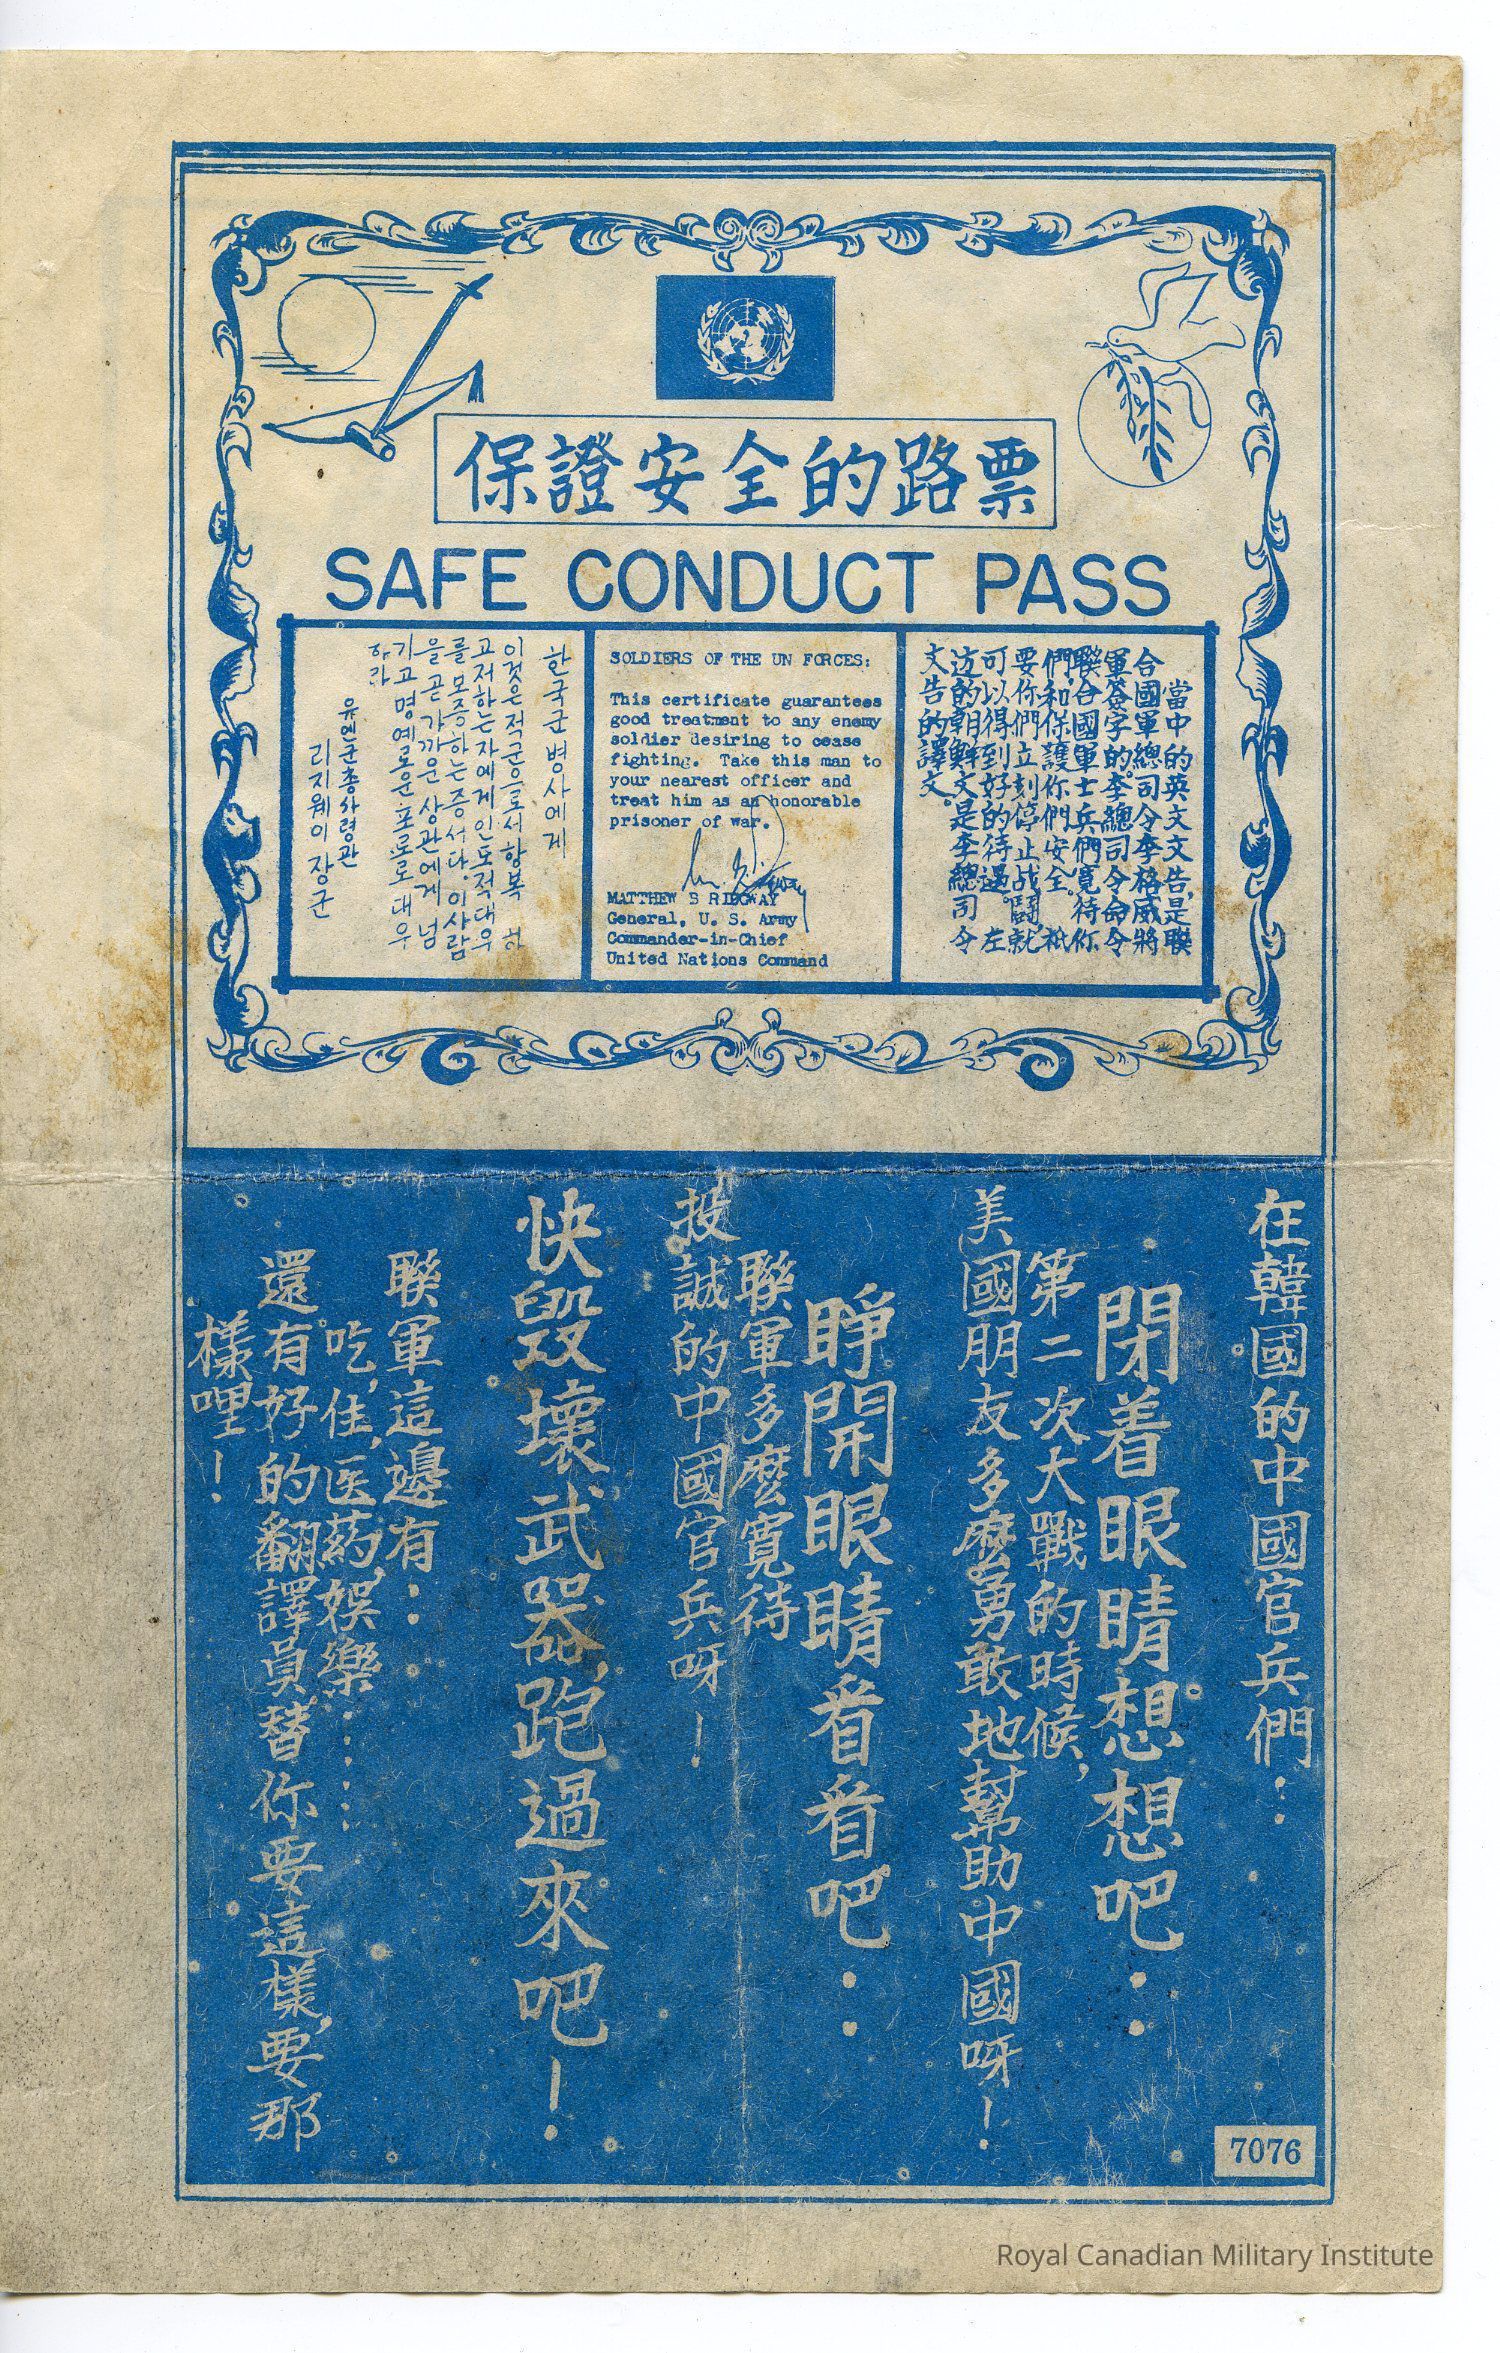 保證安全的路票
SAFE CONDUCT PASS
한국군 병사에게
이것은 적군으로서 항복 하
고저하는 자에게 인도적 대우
를 보증하는 증서다. 이 사람
을 곧 가까운 상관에게 넘
기고 명예로운 포로로 대우
하라
유엔군 총사령관
리지웨이 장군
SOLDIERS OF THE UN FORCES:
This certificate guarantees
good treatment to any enemy
soldier desiring to cease
fighting. Take this man to
your nearest officer and
treat him as an honorable
prisoner of war.
MATTHEW B RIDGWAY
General, U. S. Army
Commander-in-Chief
United Nations Command
當中的英文文告,是聯
合國軍總司令李格威將
軍簽字的。李總司令命令
聯合國軍士兵們寬待你
們,和保護你們安全。祇
要你們立刻停止战鬪,就
可以得到好的待遇。左
边的朝鮮文是李總司令
文告的譯文。
在韓國的中國官兵們：
閉着眼睛想想吧：
第二次大戰的時候,
美國朋友多麽勇敢地幫助中國呀！
睜開眼睛看看吧：
聯軍多麽寬待
投誠的中國官兵呀！
快毀壞武器,跑過來吧！
聯軍這邊有：
吃,住,医葯,娛樂……
還有好的翻譯員替你要這樣,要那
樣哩！
7076
Royal Canadian Military Institute